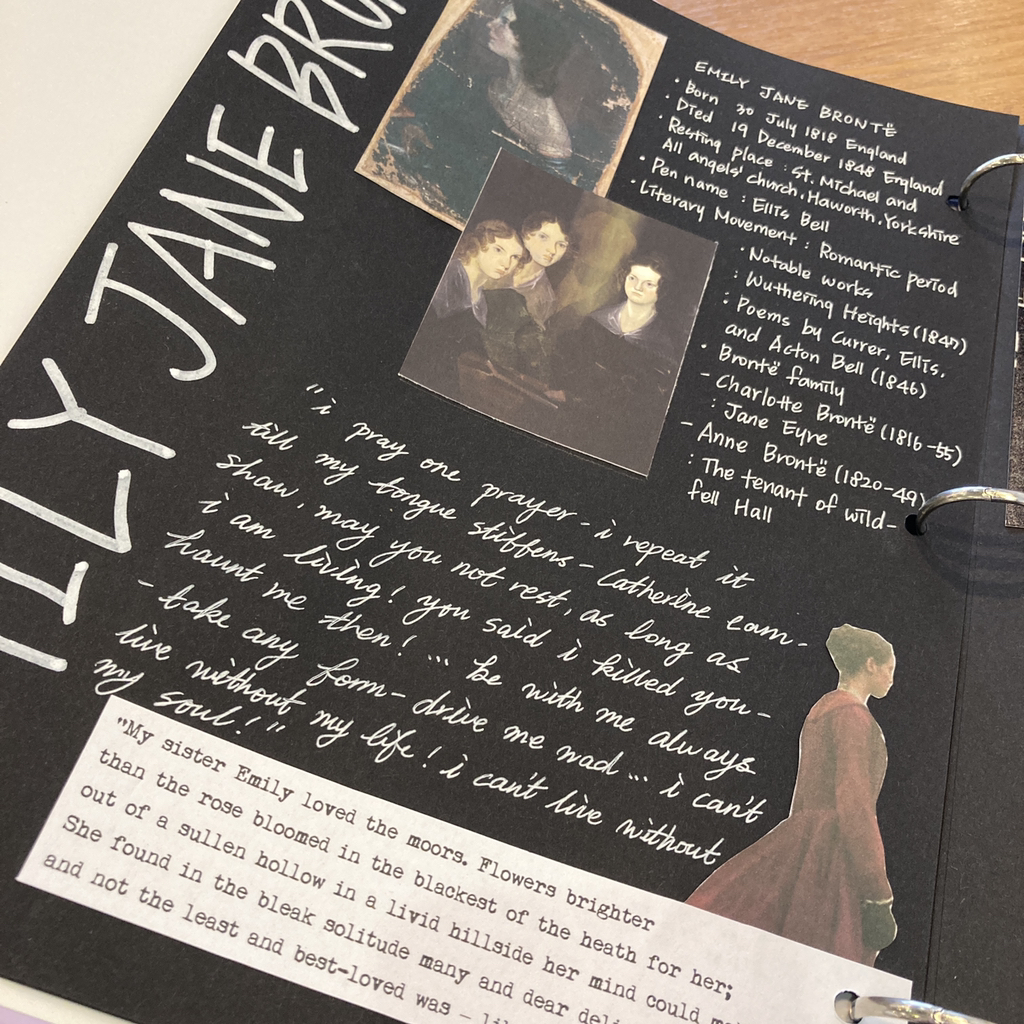 ILY JANE BRO
EMILY JANE BRONTË
• Born 30 July 1818 England
• Died 19 December 1848 England
• Resting place : St. Michael and
All angels' church, Haworth, Yorkshire
• Pen name : Ellis Bell
• Literary Movement : Romantic period
• Notable works
: Wuthering Heights (1847)
: Poems by Currer, Ellis,
and Acton Bell (1846)
• Brontë family
- Charlotte Brontë (1816-55)
: Jane Eyre
- Anne Brontë (1820-49)
: The tenant of wild-
fell Hall
"i pray one prayer - i repeat it
till my tongue stiffens - Catherine earn-
shaw, may you not rest, as long as
i am living! you said i killed you -
haunt me then! ... be with me always
- take any form - drive me mad ... i can't
live without my life! i can't live without
my soul!"
"My sister Emily loved the moors. Flowers brighter
than the rose bloomed in the blackest of the heath for her;
out of a sullen hollow in a livid hillside her mind could
She found in the bleak solitude many and dear
and not the least and best-loved was –